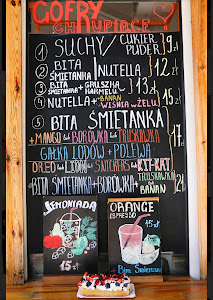 GOFRY
CHRUPIĄCE!
1 SUCHY / CUKIER PUDER 9 zł
2 BITA ŚMIETANKA / NUTELLA 12 zł
3 BITA ŚMIETANKA + GRUSZKA KARMELU 13 zł
4 NUTELLA + BANAN WIŚNIA w ŻELU 15 zł
5 BITA ŚMIETANKA
+ MANGO LUB BORÓWKA LUB TRUSKAWKA
GAŁKA LODÓW + POLEWA 17 zł
OREO LUB LION LUB SNICKERS LUB KIT-KAT
+ BITA ŚMIETANKA + BORÓWKA + TRUSKAWKA + BANAN 21 zł
LEMONIADA
15 zł
ORANGE
ESPRESSO
15 zł